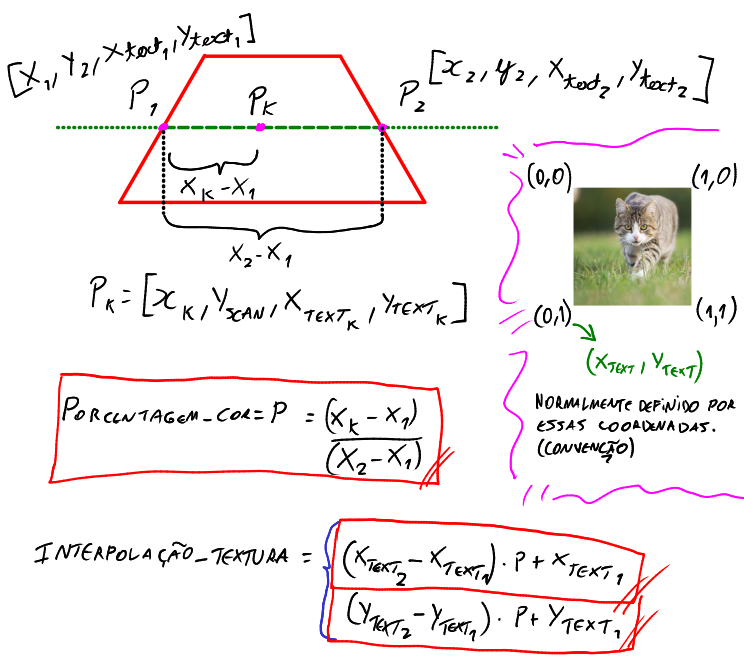 [X₁, Y₂, Xtext₁, Ytext₁]
[x₂, y₂, Xtext₂, Ytext₂]
P₁ Pₖ P₂
Xₖ-X₁
X₂-X₁
Pₖ = [xₖ, Yscan, XTEXTₖ, YTEXTₖ]
(0,0) (1,0)
(0,1) (1,1)
(XTEXT, YTEXT)
NORMALMENTE DEFINIDO POR
ESSAS COORDENADAS.
(CONVENÇÃO)
PORCENTAGEM_COR = P = (Xₖ - X₁)
(X₂ - X₁)
INTERPOLAÇÃO_TEXTURA = (XTEXT₂ - XTEXT₁) . P + XTEXT₁
(YTEXT₂ - YTEXT₁) . P + YTEXT₁